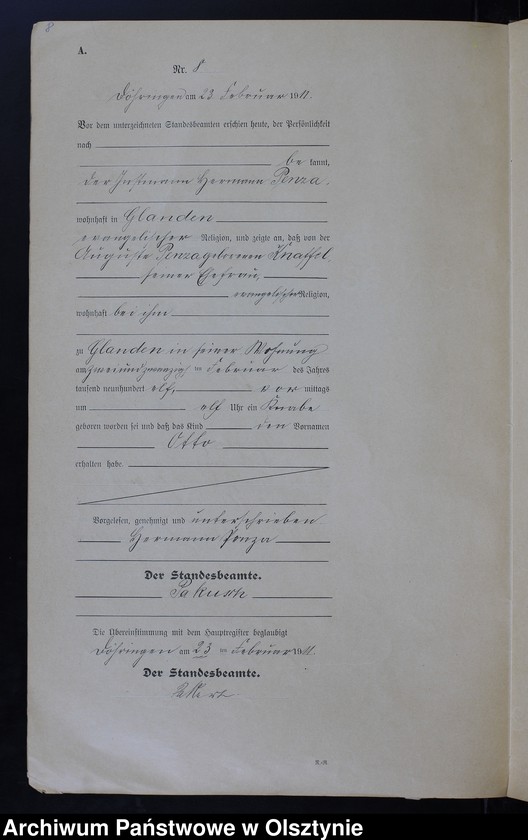 8
A.
Nr. 8
Döhringen am 23. Februar 1911.
Vor dem unterzeichneten Standesbeamten erschien heute, der Persönlichkeit
nach
be kannt,
der Instmann Hermann Penza,
wohnhaft in Glanden
evangelischer Religion, und zeigte an, daß von der
Auguste Penza geborenen
seiner Ehefrau,
evangelischer Religion,
wohnhaft bei ihm
zu Glanden in seiner Wohnung
am zweiundzwanzigten Februar des Jahres
tausend neunhundert elf, vor mittags
um elf Uhr ein Knabe
geboren worden sei und daß das Kind den Vornamen
Otto
erhalten habe.
Vorgelesen, genehmigt und unterschrieben
Hermann Penza
Der Standesbeamte.
Die Übereinstimmung mit dem Hauptregister beglaubigt
Döhringen am 23 ten Februar 1911.
Der Standesbeamte.
Archiwum Państwowe w Olsztynie